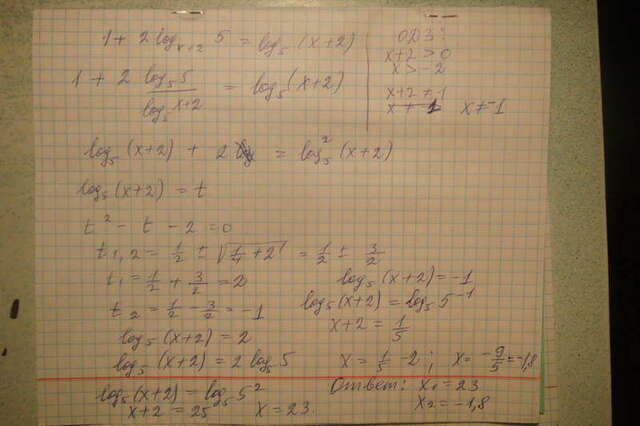 1 + 2 log_{x+2} 5 = log_5 (x+2)
1 + 2 log_5 5 / log_5 x+2 = log_5 (x+2)
log_5 (x+2) + 2 = log_5^2 (x+2)
log_5 (x+2) = t
t^2 - t - 2 = 0
t_{1,2} = 1/2 ± √(1/4 + 2) = 1/2 ± 3/2
t_1 = 1/2 + 3/2 = 2
t_2 = 1/2 - 3/2 = -1
log_5 (x+2) = 2
log_5 (x+2) = 2 log_5 5
log_5 (x+2) = log_5 5^2
x+2 = 25 x = 23.
ОДЗ:
x+2 > 0
x > -2
x+2 ≠ 1
x ≠ 1 x ≠ -1
log_5 (x+2) = -1
log_5 (x+2) = log_5 5^{-1}
x+2 = 1/5
x = 1/5 - 2; x = -9/5 = -1,8
Ответ: x_1 = 23
x_2 = -1,8